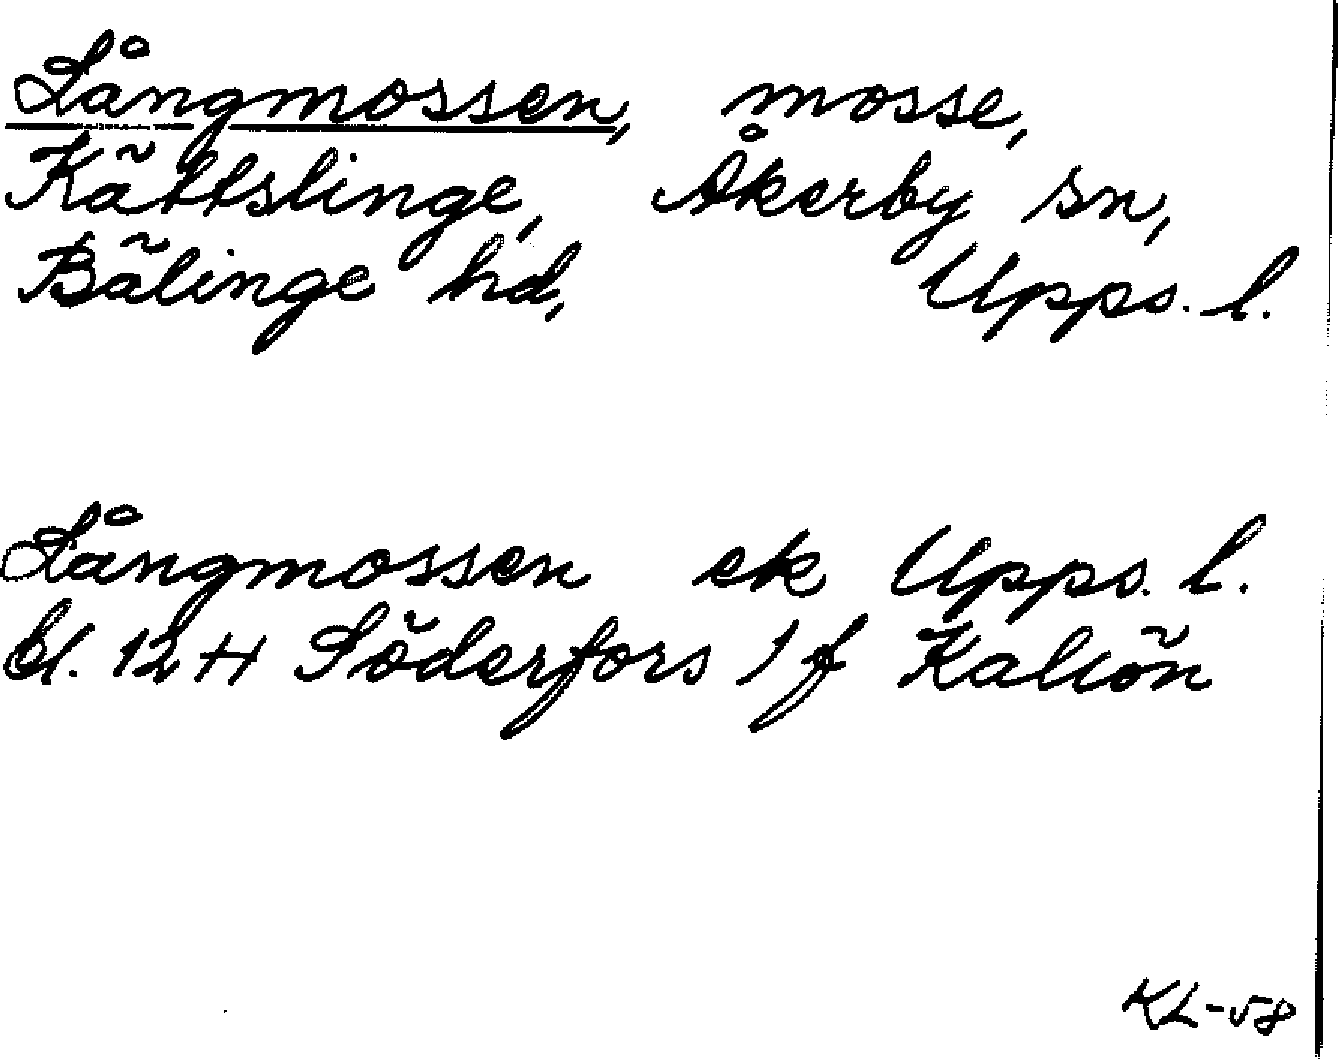 Långmossen, mosse,
Kättslinge, Åkerby sn,
Bälinge hd, Upps. l.
Långmossen ek Upps. l.
bl. 12 H Söderfors 1 f Kallön
KL-58